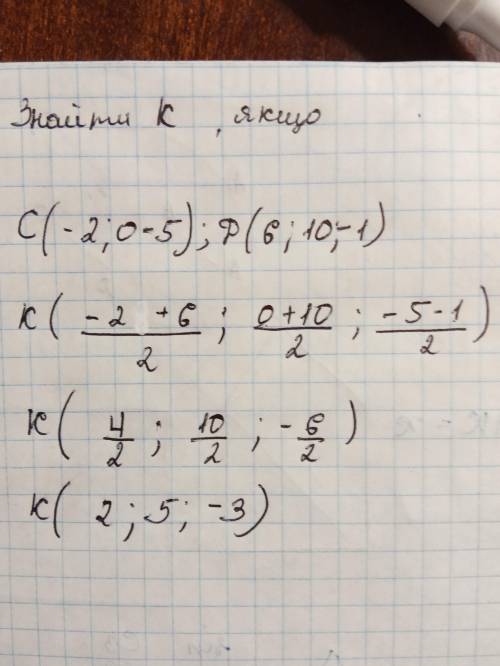 Знайти K , якщо
C(-2;0-5); P(6;10;-1)
K( -2+6/2 ; 0+10/2 ; -5-1/2 )
K( 4/2 ; 10/2 ; -6/2 )
K( 2; 5; -3)